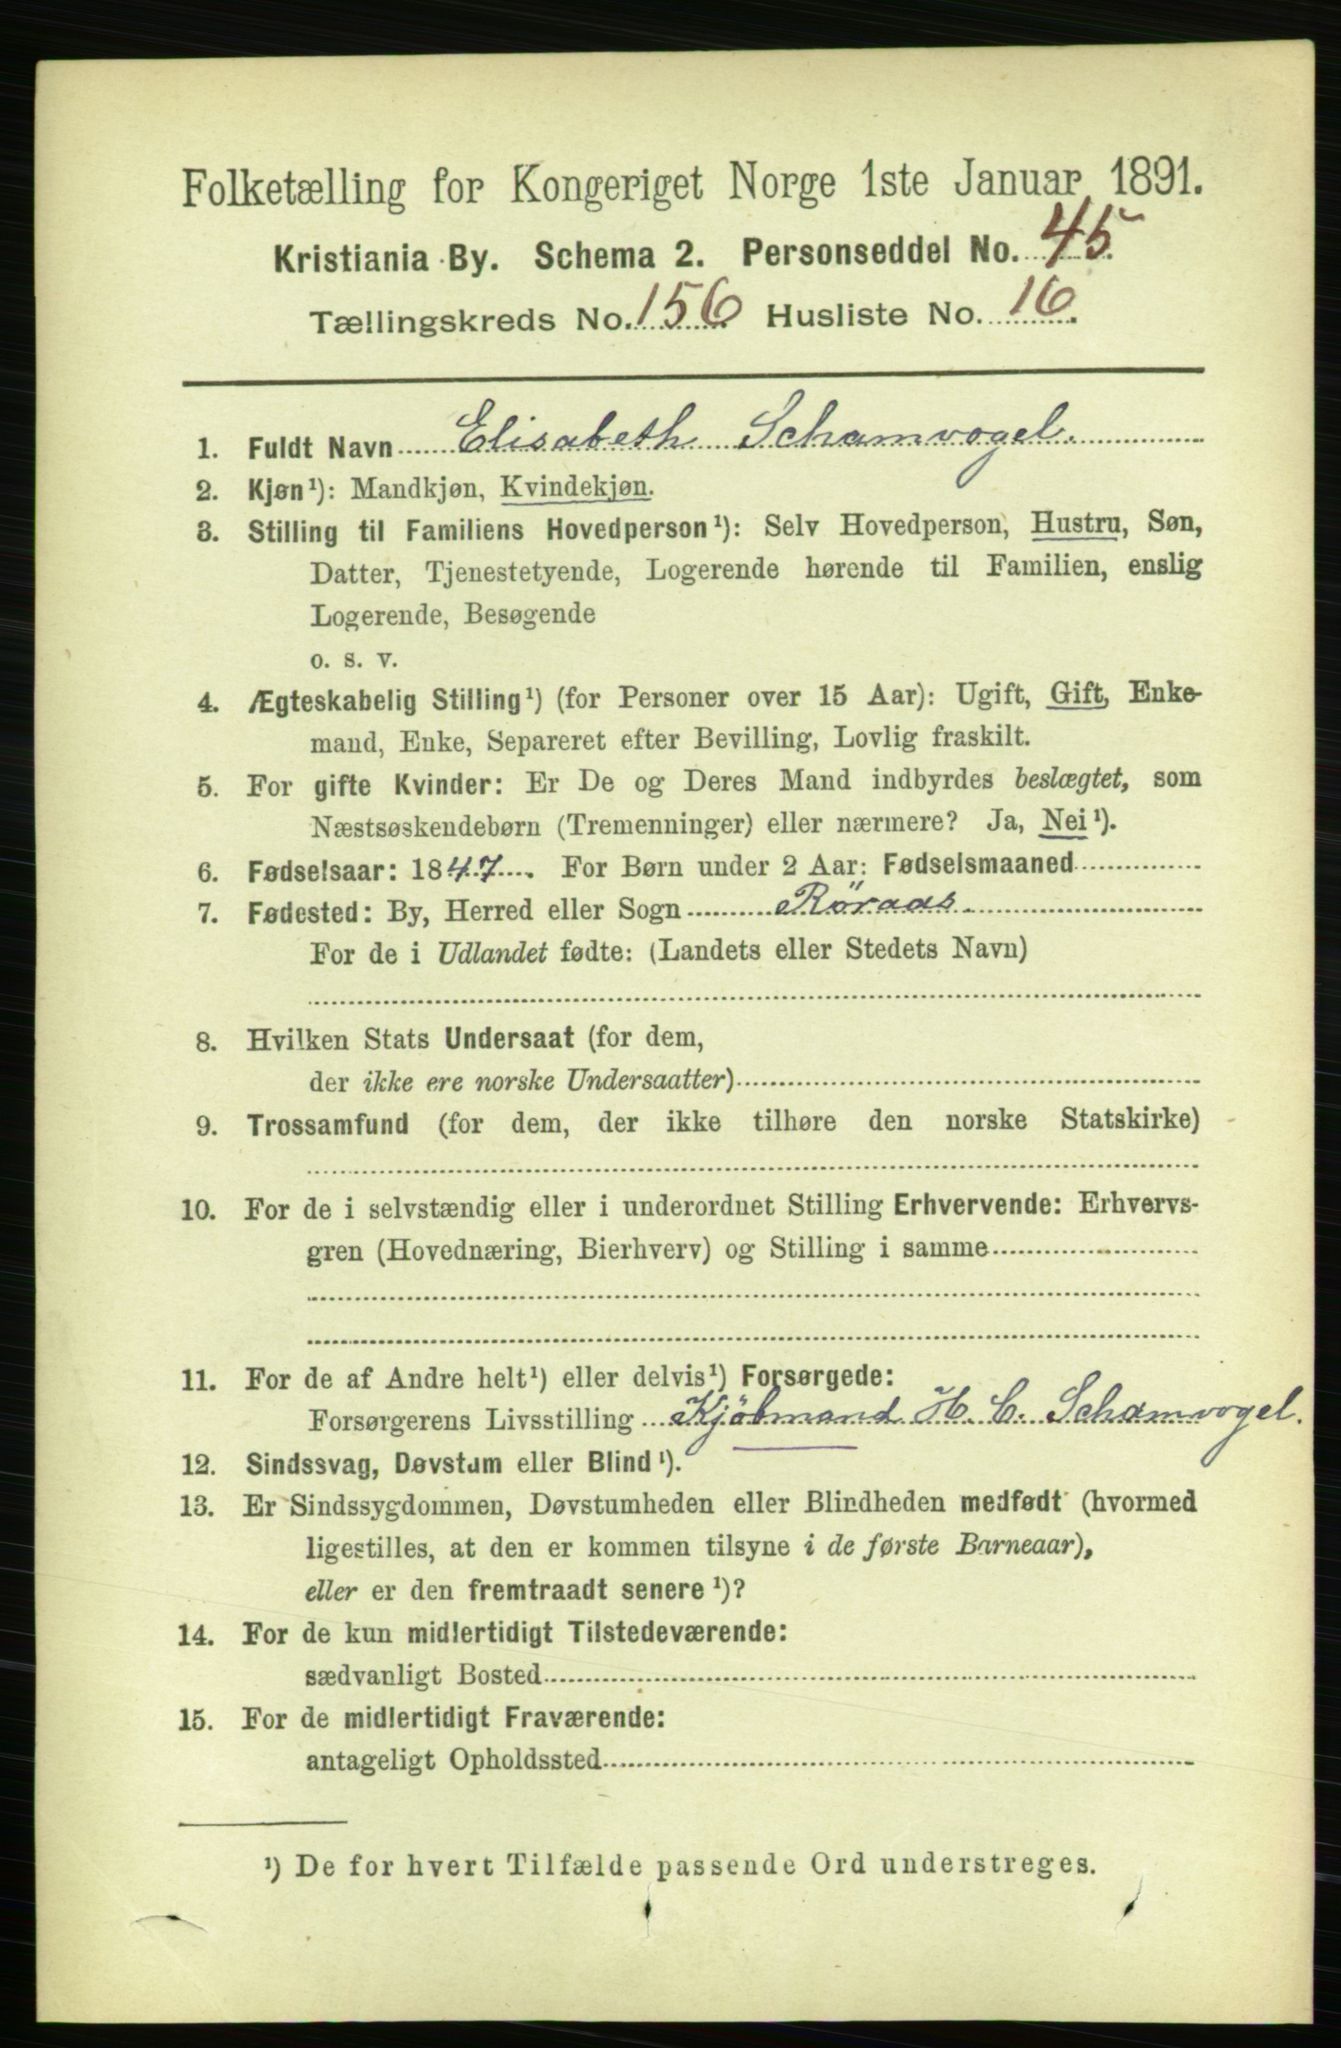 Folketælling for Kongeriget Norge 1ste Januar 1891.
Kristiania By. Schema 2. Personseddel No. 45.
Tællingskreds No. 156 Husliste No. 16.
1. Fuldt Navn Elisabeth Schamvogel.
2. Kjøn¹): Mandkjøn, Kvindekjøn.
3. Stilling til Familiens Hovedperson¹): Selv Hovedperson, Hustru, Søn,
Datter, Tjenestetyende, Logerende hørende til Familien, enslig
Logerende, Besøgende
o. s. v.
4. Ægteskabelig Stilling¹) (for Personer over 15 Aar): Ugift, Gift, Enke-
mand, Enke, Separeret efter Bevilling, Lovlig fraskilt.
5. For gifte Kvinder: Er De og Deres Mand indbyrdes beslægtet, som
Næstsøskendebørn (Tremenninger) eller nærmere? Ja, Nei¹).
6. Fødselsaar: 1847. For Børn under 2 Aar: Fødselsmaaned
7. Fødested: By, Herred eller Sogn Röraas.
For de i Udlandet fødte: (Landets eller Stedets Navn)
8. Hvilken Stats Undersaat (for dem,
der ikke ere norske Undersaatter)
9. Trossamfund (for dem, der ikke tilhøre den norske Statskirke)
10. For de i selvstændig eller i underordnet Stilling Erhvervende: Erhvervs-
gren (Hovednæring, Bierhverv) og Stilling i samme
11. For de af Andre helt¹) eller delvis¹) Forsørgede:
Forsørgerens Livsstilling Kjöbmand H. C. Schamvogel.
12. Sindssvag, Døvstum eller Blind¹).
13. Er Sindssygdommen, Døvstumheden eller Blindheden medfødt (hvormed
ligestilles, at den er kommen tilsyne i de første Barneaar),
eller er den fremtraadt senere¹)?
14. For de kun midlertidigt Tilstedeværende:
sædvanligt Bosted
15. For de midlertidigt Fraværende:
antageligt Opholdssted
¹) De for hvert Tilfælde passende Ord understreges.